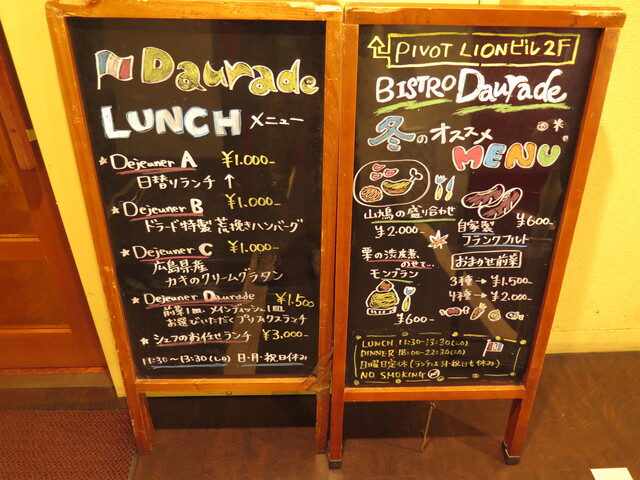 Daurade
LUNCH メニュー
★Dejeuner A ¥1.000-
日替りランチ ↑
★Dejeuner B ¥1.000-
ドラード特製 荒挽きハンバーグ
★Dejeuner C ¥1.000-
広島県産
カキのクリームグラタン
★Dejeuner Daurade ¥1.500
前菜1皿、メインディッシュ1皿
お選びいただくプリフィクスランチ
★シェフのお任せランチ ¥3.000-
11:30～13:30(LO) 日・月・祝日休み
PIVOT LIONビル2F
BISTRO Daurade
冬のオススメ
MENU
山鳩の盛り合わせ
¥2.000
自家製
フランクフルト
¥600-
栗の渋皮煮
のせて…
モンブラン
¥600-
おまかせ前菜
3種→¥1.500
4種→¥2.000-
LUNCH 11:30-13:30(LO)
DINNER 18:00-22:30(LO)
月曜日定休(ランチは日・祝日も休み)
NO SMOKING